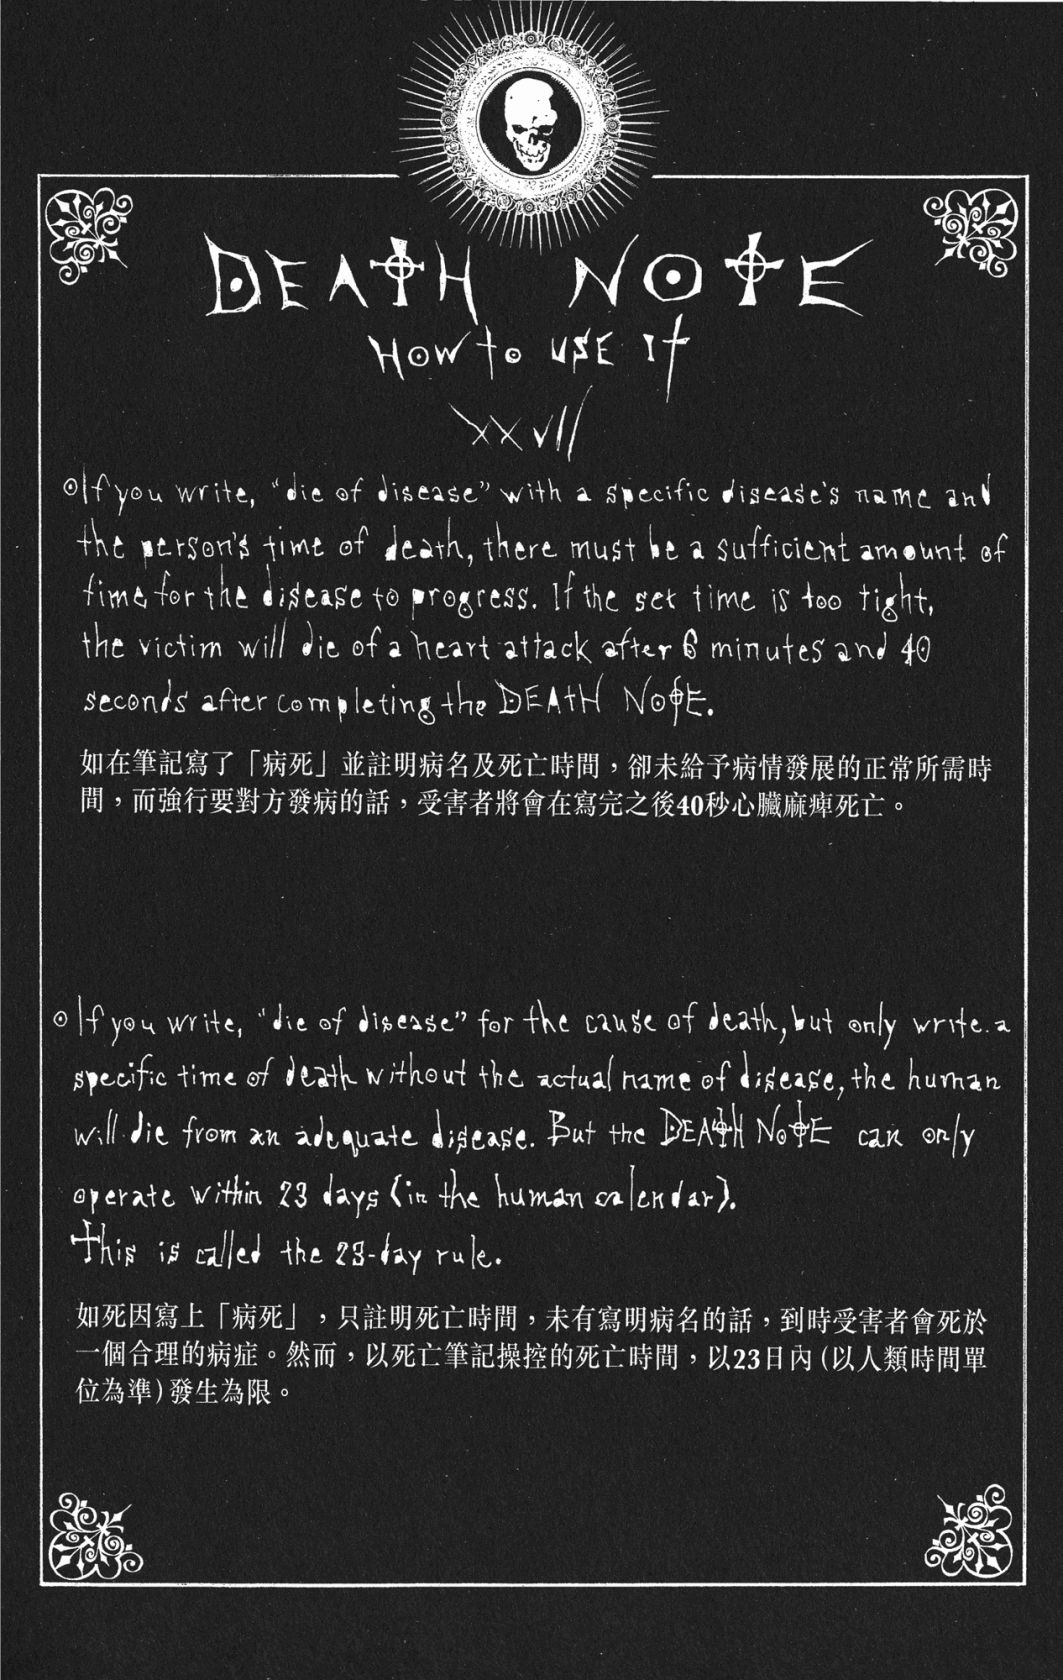 DEATH NOTE
HOW to USE It
XXVII
If you write, "die of disease" with a specific disease's name and
the person's time of death, there must be a sufficient amount of
time for the disease to progress. If the set time is too tight,
the victim will die of a heart attack after 6 minutes and 40
seconds after completing the DEATH NOTE.
如在筆記寫了「病死」並註明病名及死亡時間，卻未給予病情發展的正常所需時
間，而強行要對方發病的話，受害者將會在寫完之後40秒心臟麻痺死亡。
If you write, "die of disease" for the cause of death, but only write a
specific time of death without the actual name of disease, the human
will die from an adequate disease. But the DEATH NOTE can only
operate within 23 days (in the human calendar).
This is called the 23-day rule.
如死因寫上「病死」，只註明死亡時間，未有寫明病名的話，到時受害者會死於
一個合理的病症。然而，以死亡筆記操控的死亡時間，以23日內(以人類時間單
位為準)發生為限。